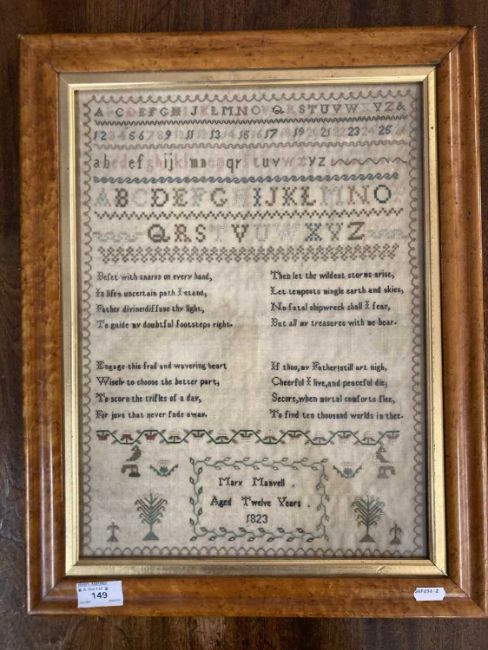 A B C D E F G H I J K L M N O P Q R S T U V W X Y Z &
1 2 3 4 5 6 7 8 9 10 11 12 13 14 15 16 17 18 19 20 21 22 23 24 25 26
a b c d e f g h i j k l m n o p q r s t u v w x y z
A B C D E F G H I J K L M N O
Q R S T V U W X Y Z
Beset with snares on every hand,
In life's uncertain path I stand,
Father divine diffuse thy light,
To guide my doubtful footsteps right.
Then let the wildest storms arise,
Let tempests mingle earth and skies,
No fatal shipwreck shall I fear,
But all my treasures with me bear.
Engage this frail and wavering heart
Wisely to choose the better part,
To scorn the trifles of a day,
For joys that never fade away.
If thou, my Father still art nigh,
Cheerful I live, and peaceful die,
Secure, when mortal comforts flee,
To find ten thousand worlds in thee.
Mary Manvell .
Aged Twelve Years .
1823
149